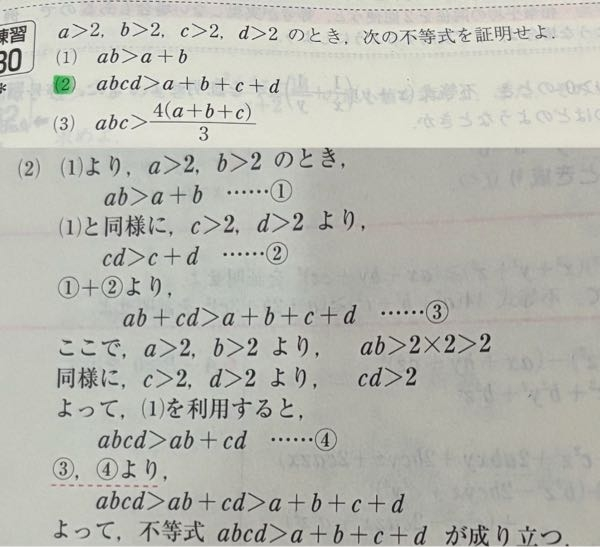 練習 a>2, b>2, c>2, d>2 のとき, 次の不等式を証明せよ.
30 (1) ab>a+b
* (2) abcd>a+b+c+d
(3) abc>4(a+b+c)/3
(2) (1)より, a>2, b>2 のとき,
ab>a+b ……①
(1)と同様に, c>2, d>2 より,
cd>c+d ……②
①+②より,
ab+cd>a+b+c+d ……③
ここで, a>2, b>2 より, ab>2×2>2
同様に, c>2, d>2 より, cd>2
よって, (1)を利用すると,
abcd>ab+cd ……④
③, ④より,
abcd>ab+cd>a+b+c+d
よって, 不等式 abcd>a+b+c+d が成り立つ.